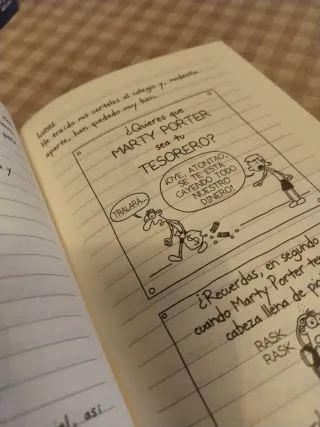 Lunes
He traído mis carteles al colegio y, modestia
aparte, han quedado muy bien.
¿Quieres que
MARTY PORTER
sea tu
TESORERO?
TRALARÁ...
¡OYE, ATONTAO,
SE TE ESTÁ
CAYENDO TODO
NUESTRO
DINERO!
¿Recuerdas, en segundo
cuando Marty Porter
cabeza llena de
RASK
RASK
así
y